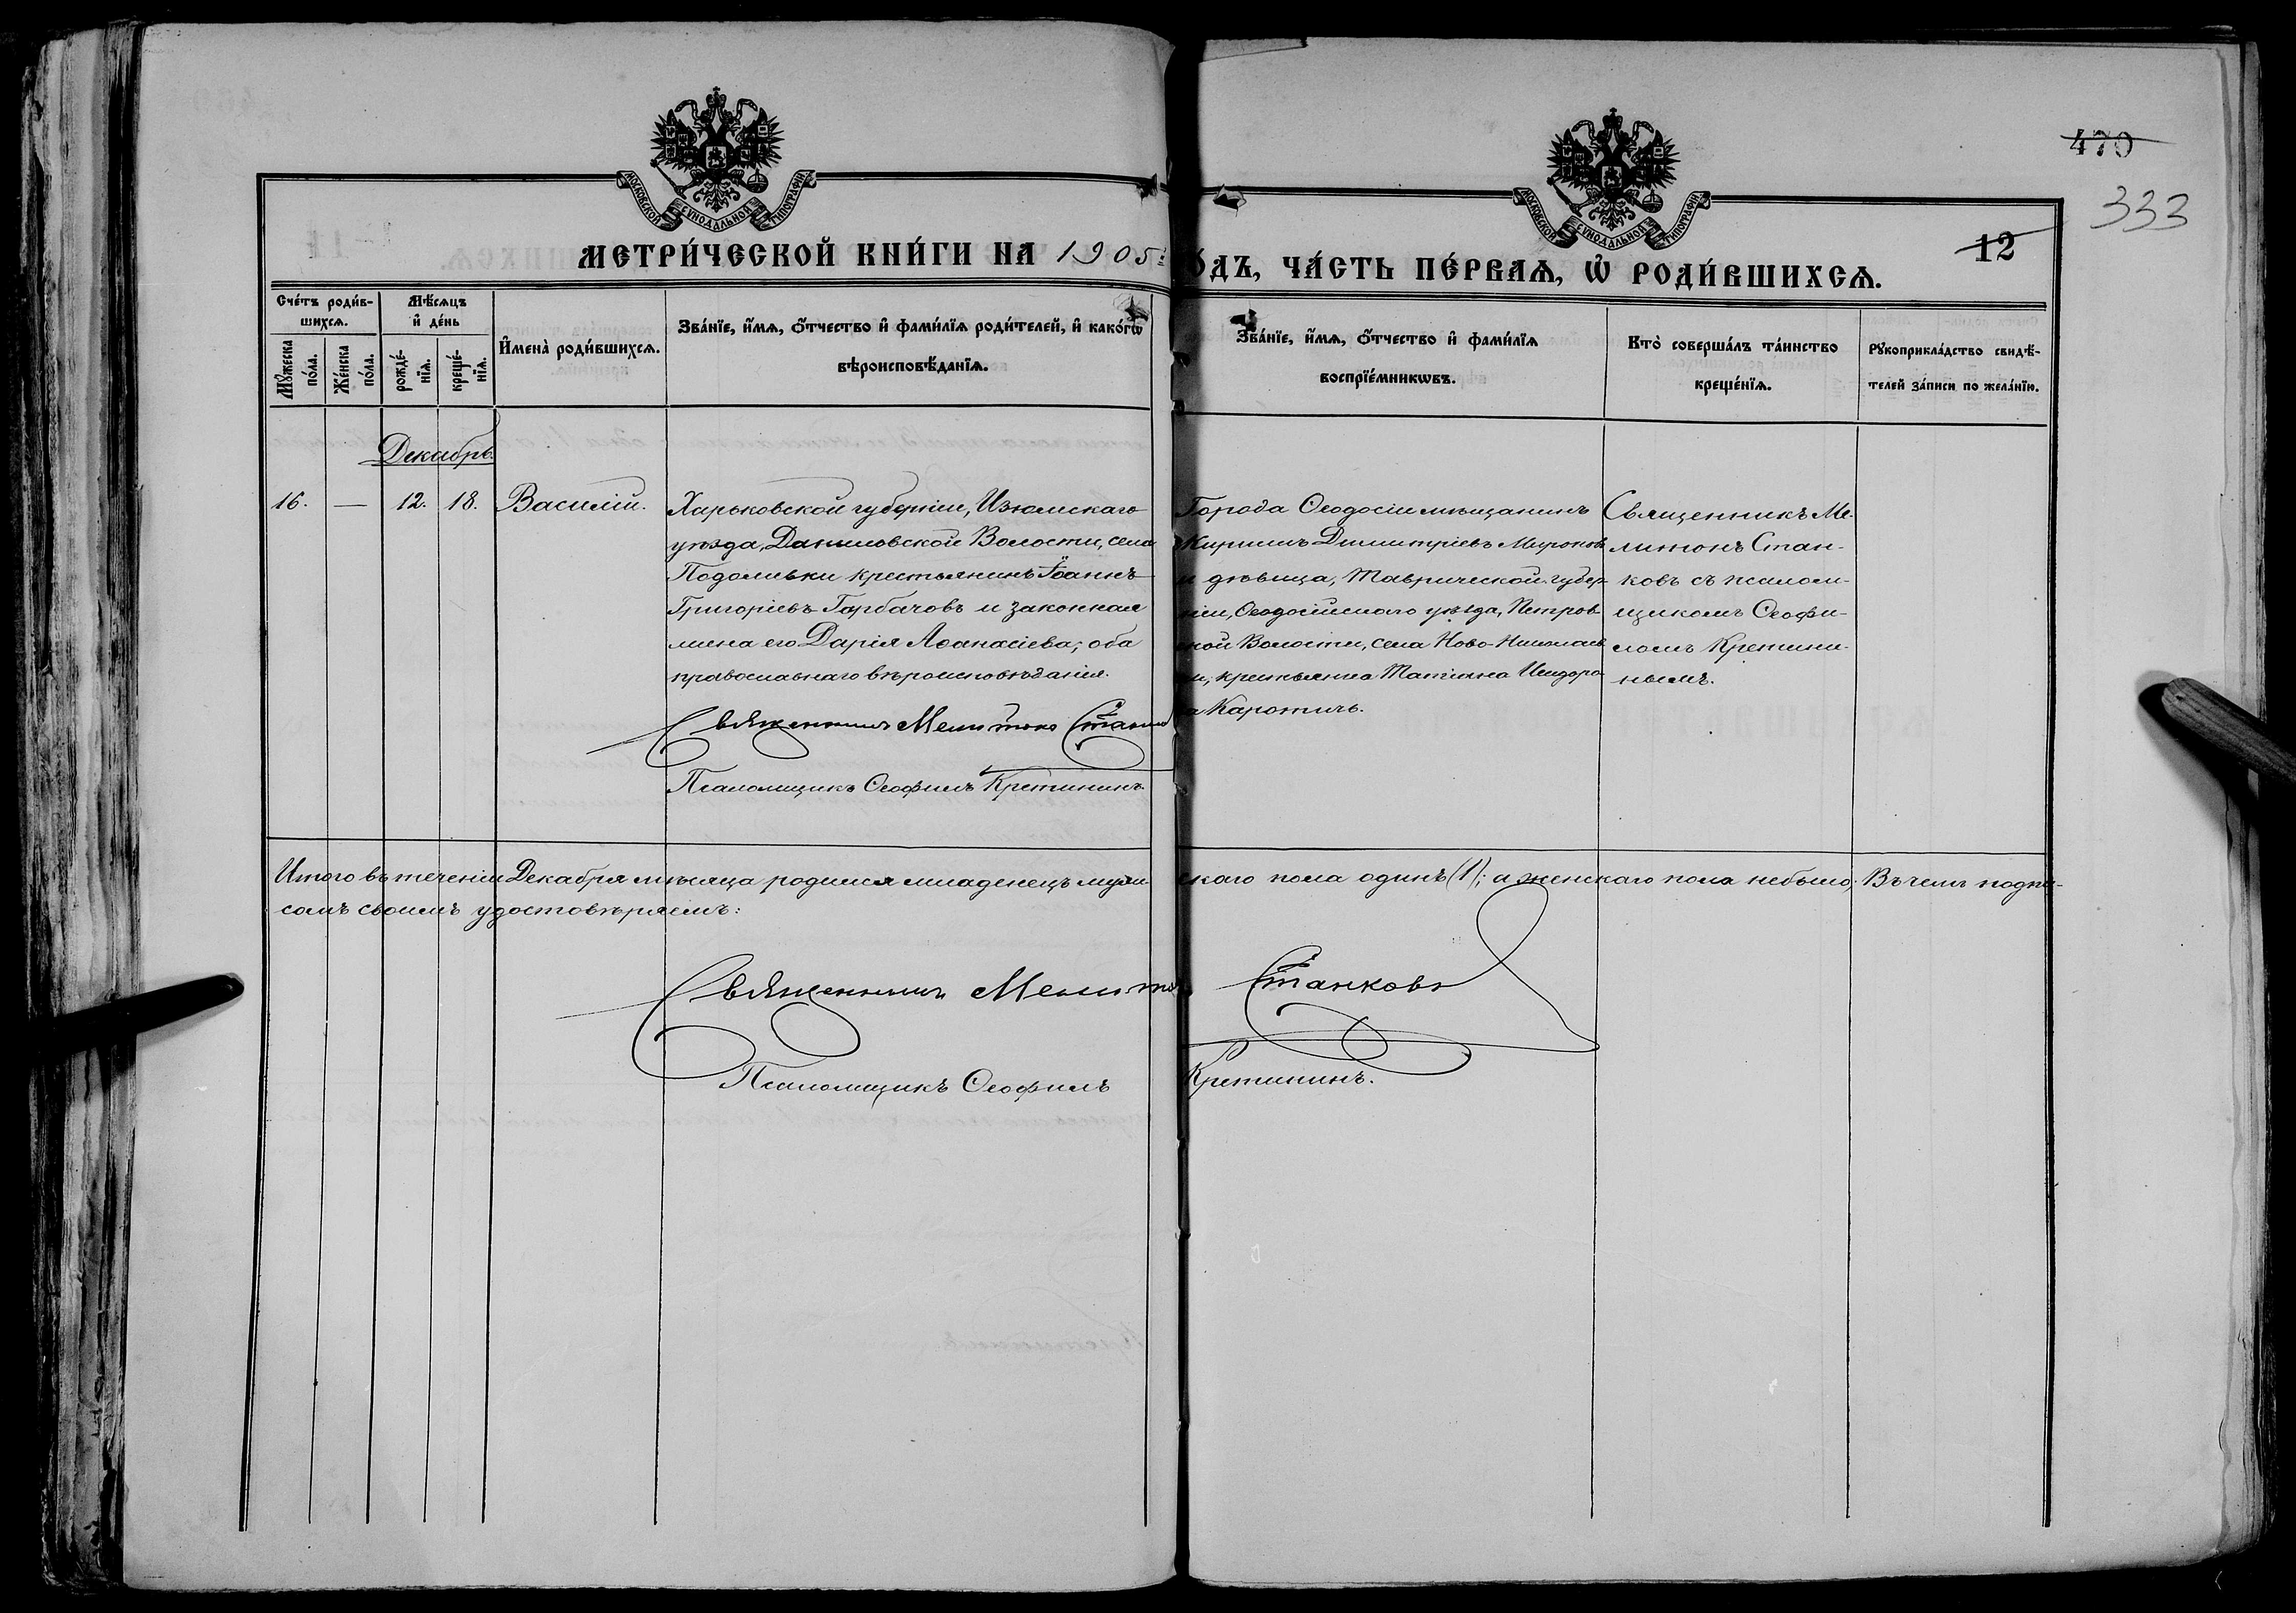 МОСКОВСКОЙ СѴНОДАЛЬНОЙ ТИПОГРАФІИ
МОСКОВСКОЙ СѴНОДАЛЬНОЙ ТИПОГРАФІИ
470
333
12
МЕТРИ́ЧЕСКОЙ КНИ́ГИ НА 1905 ОДЪ, ЧА́СТЬ ПЕ́РВАѦ, Ѡ҆ РОДИ́ВШИХСѦ.
Сче́тъ роди́в-
шихсѧ.
Мѣ́сѧцъ
и҆ де́нь
Мꙋ́жеска
по́ла.
Же́нска
по́ла.
рожде́-
нїѧ.
креще́-
нїѧ.
И҆мена̀ роди́вшихсѧ.
Зва́нїе, и҆́мѧ, ѻ҆́тчество и҆ фами́лїѧ роди́телей, и҆ како́гѡ
вѣроисповѣ́данїѧ.
Зва́нїе, и҆́мѧ, ѻ҆́тчество и҆ фами́лїѧ
воспрїе́мникѡвъ.
Кто̀ соверша́лъ та́инство
креще́нїѧ.
Рꙋкоприкла́дство свидѣ́-
телей за́писи по жела́нїю.
Декабрь.
16. — 12. 18. Василій.
Харьковской губерніи, Изюмскаго
уѣзда, Даниловской Волости, села
Подоливки крестьянинъ Іоаннъ
Григоріевъ Горбачовъ и законная
жена его Дарія Аѳанасіева; оба
православнаго вѣроисповѣданія.
Священникъ Мелитонъ Станков
Псаломщикъ Ѳеофилъ Кретининъ.
Города Ѳеодосіи мѣщанинъ
Кириллъ Димитріевъ Миронов
и дѣвица, Таврической губер-
ніи, Ѳеодосійскаго уѣзда, Петров
ской Волости, села Ново-Николаев
и, крестьянка Татіана Исидоро
а Каротичъ.
Священникъ Ме-
литонъ Стан-
ковъ съ псалом-
щикомъ Ѳеофи-
ломъ Кретини-
нымъ.
Итого въ теченіи Декабря мѣсяца родился младенецъ муже скаго пола одинъ (1); а женскаго пола небыло. Въ чемъ подпи-
сомъ своимъ удостовѣряемъ:
Священникъ Мелитон Станковъ
Псаломщикъ Ѳеофилъ Кретининъ.